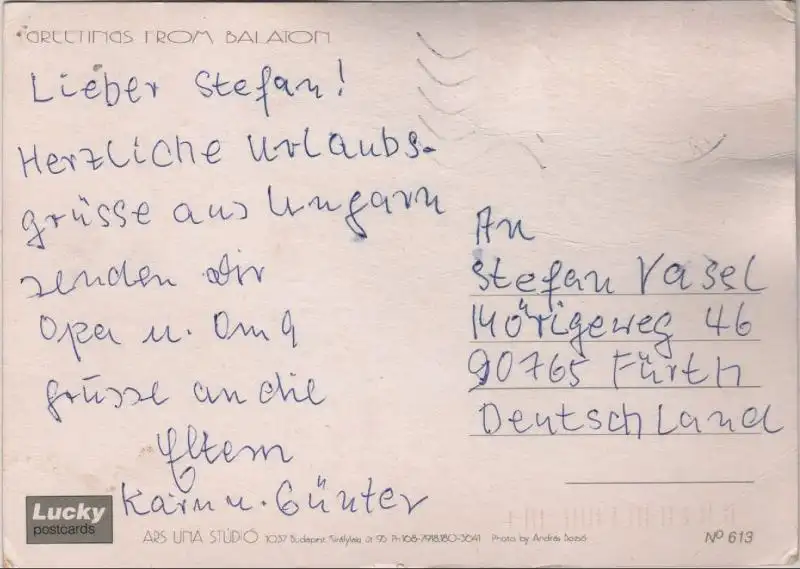 GREETINGS FROM BALATON
Lieber Stefan!
Herzliche Urlaubs-
grüsse aus Ungarn
senden dir
Opa u. Oma
grüsse an die
Eltern
Karin u. Günter
An
Stefan Vasel
90765 Fürth
Deutschland
Lucky
postcards
ARS UNA STÚDIÓ 1037 Budapest, út 95 Photo by András Dozsó
Nº 613